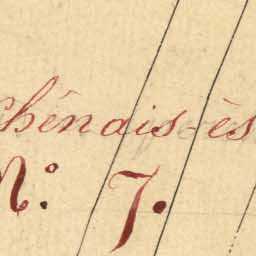 Chénais-ès
N°: 7.